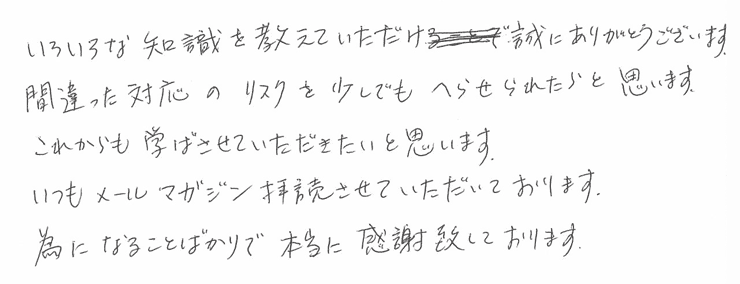 いろいろな知識を教えていただけ誠にありがとうございます
間違った対応のリスクを少しでもへらせられたらと思います.
これからも学ばさせていただきたいと思います.
いつもメールマガジン拝読させていただいております.
為になることばかりで本当に感謝致しております.